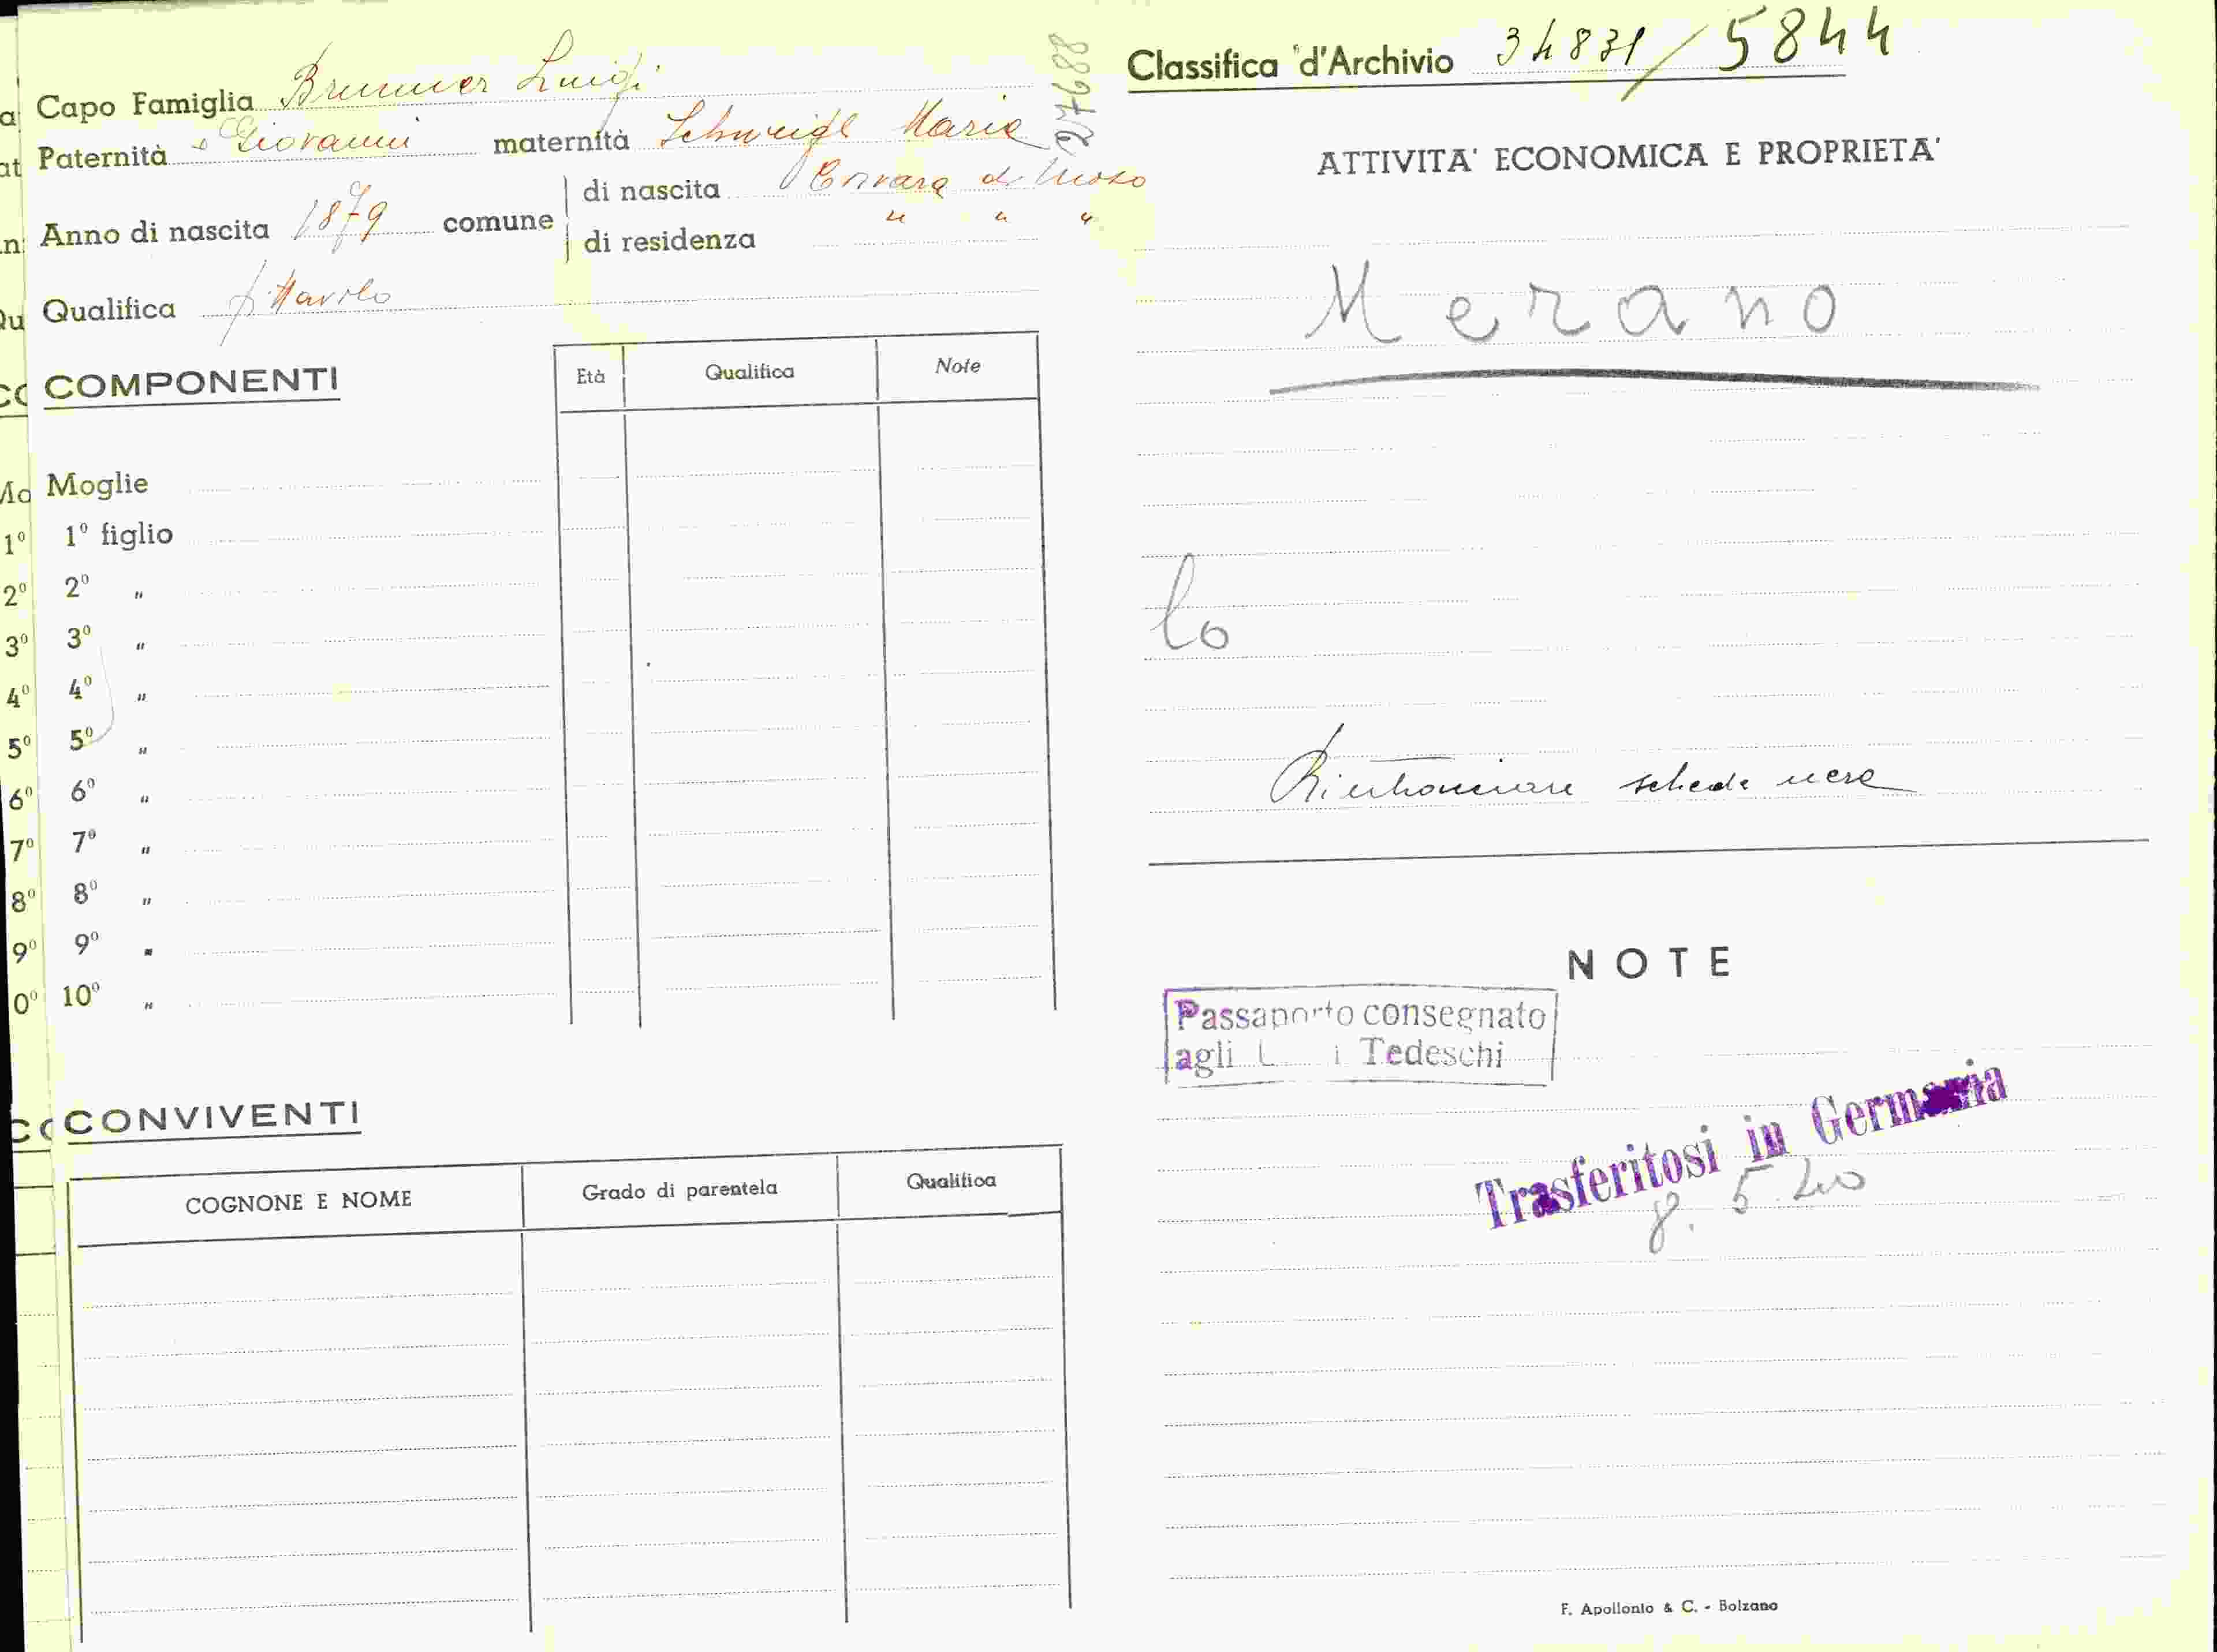 Capo Famiglia Brunner Luigi
Paternità Giovanni maternità Schweigl Maria
27688
Anno di nascita 1879 comune
di nascita Corvara di Moso
di residenza " " "
Qualifica fittavolo
COMPONENTI
Età Qualifica Note
Moglie
1º figlio
2º "
3º "
4º "
5º "
6º "
7º "
8º "
9º "
10º "
CONVIVENTI
COGNONE E NOME Grado di parentela Qualifica
Classifica d'Archivio 34831/5844
ATTIVITA' ECONOMICA E PROPRIETA'
Merano
lo
Rintracciare scheda nera
NOTE
Passaporto consegnato
agli Tedeschi
Trasferitosi in Germania
8. 5. 40
F. Apollonio & C. - Bolzano